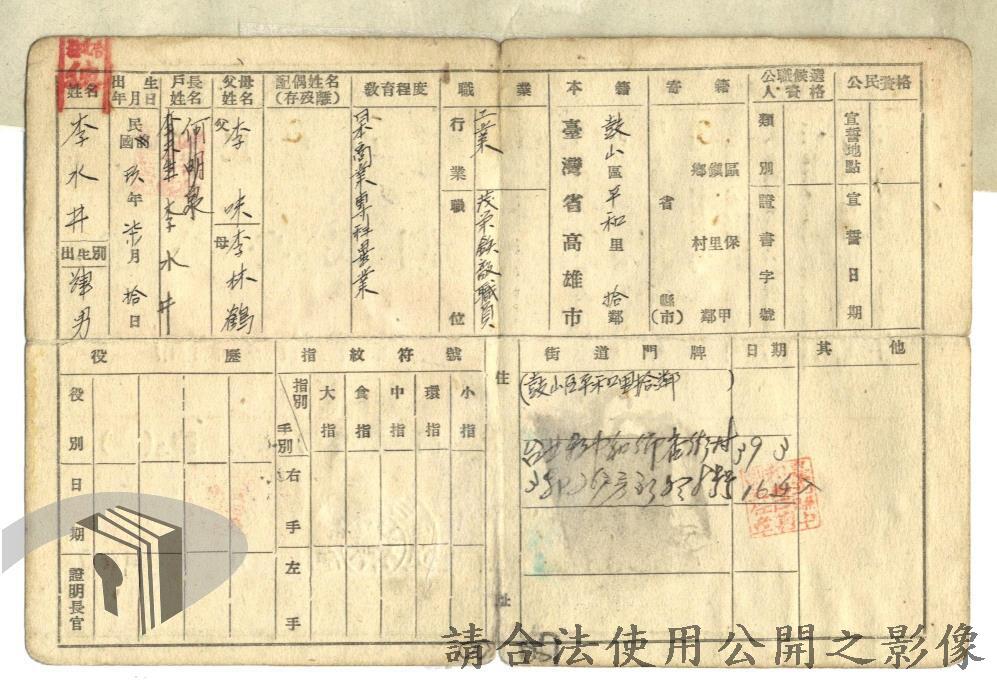 姓名
李水井
出生別
肆男
出生年月日
民國前玖年柒月拾日
戶長姓名
何明泉
李水井
父母姓名
父
李味
母
李林鶴
配偶姓名(存歿離)
教育程度
日本商業專科畢業
職業
行業
工業
職位
茂榮鉄廠職員
本籍
臺灣省高雄市
鼓山區平和里拾鄰
寄籍
省縣(市)
鄉鎮區
村里保
鄰甲
公職候選人資格
類別
證書字號
公民資格
宣誓地點
宣誓日期
役歷
役別
日期
證明長官
指紋符號
指別
手別
大指
食指
中指
環指
小指
右手
左手
住址
街道門牌
日期
其他
(鼓山區平和里拾鄰)
39 3
請合法使用公開之影像